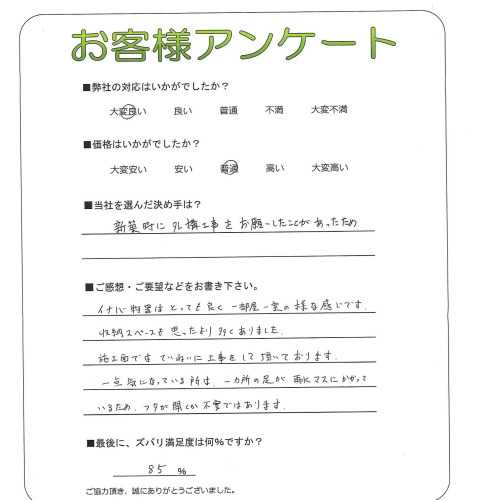 お客様アンケート
■弊社の対応はいかがでしたか？
大変良い 良い 普通 不満 大変不満
■価格はいかがでしたか？
大変安い 安い 普通 高い 大変高い
■当社を選んだ決め手は？
新築時に外構工事をお願いしたことがあったため
■ご感想・ご要望などをお書き下さい。
イナバ物置はとっても良く一部屋一室の様な感じです.
収納スペースも思ったより多くありました.
施工面ではていねいに工事をして頂いております.
一点気になっている所は、一カ所の足が雨水マスにかかって
いるため、フタが開くか不安ではあります.
■最後に、ズバリ満足度は何%ですか？
85 %
ご協力頂き、誠にありがとうございました。